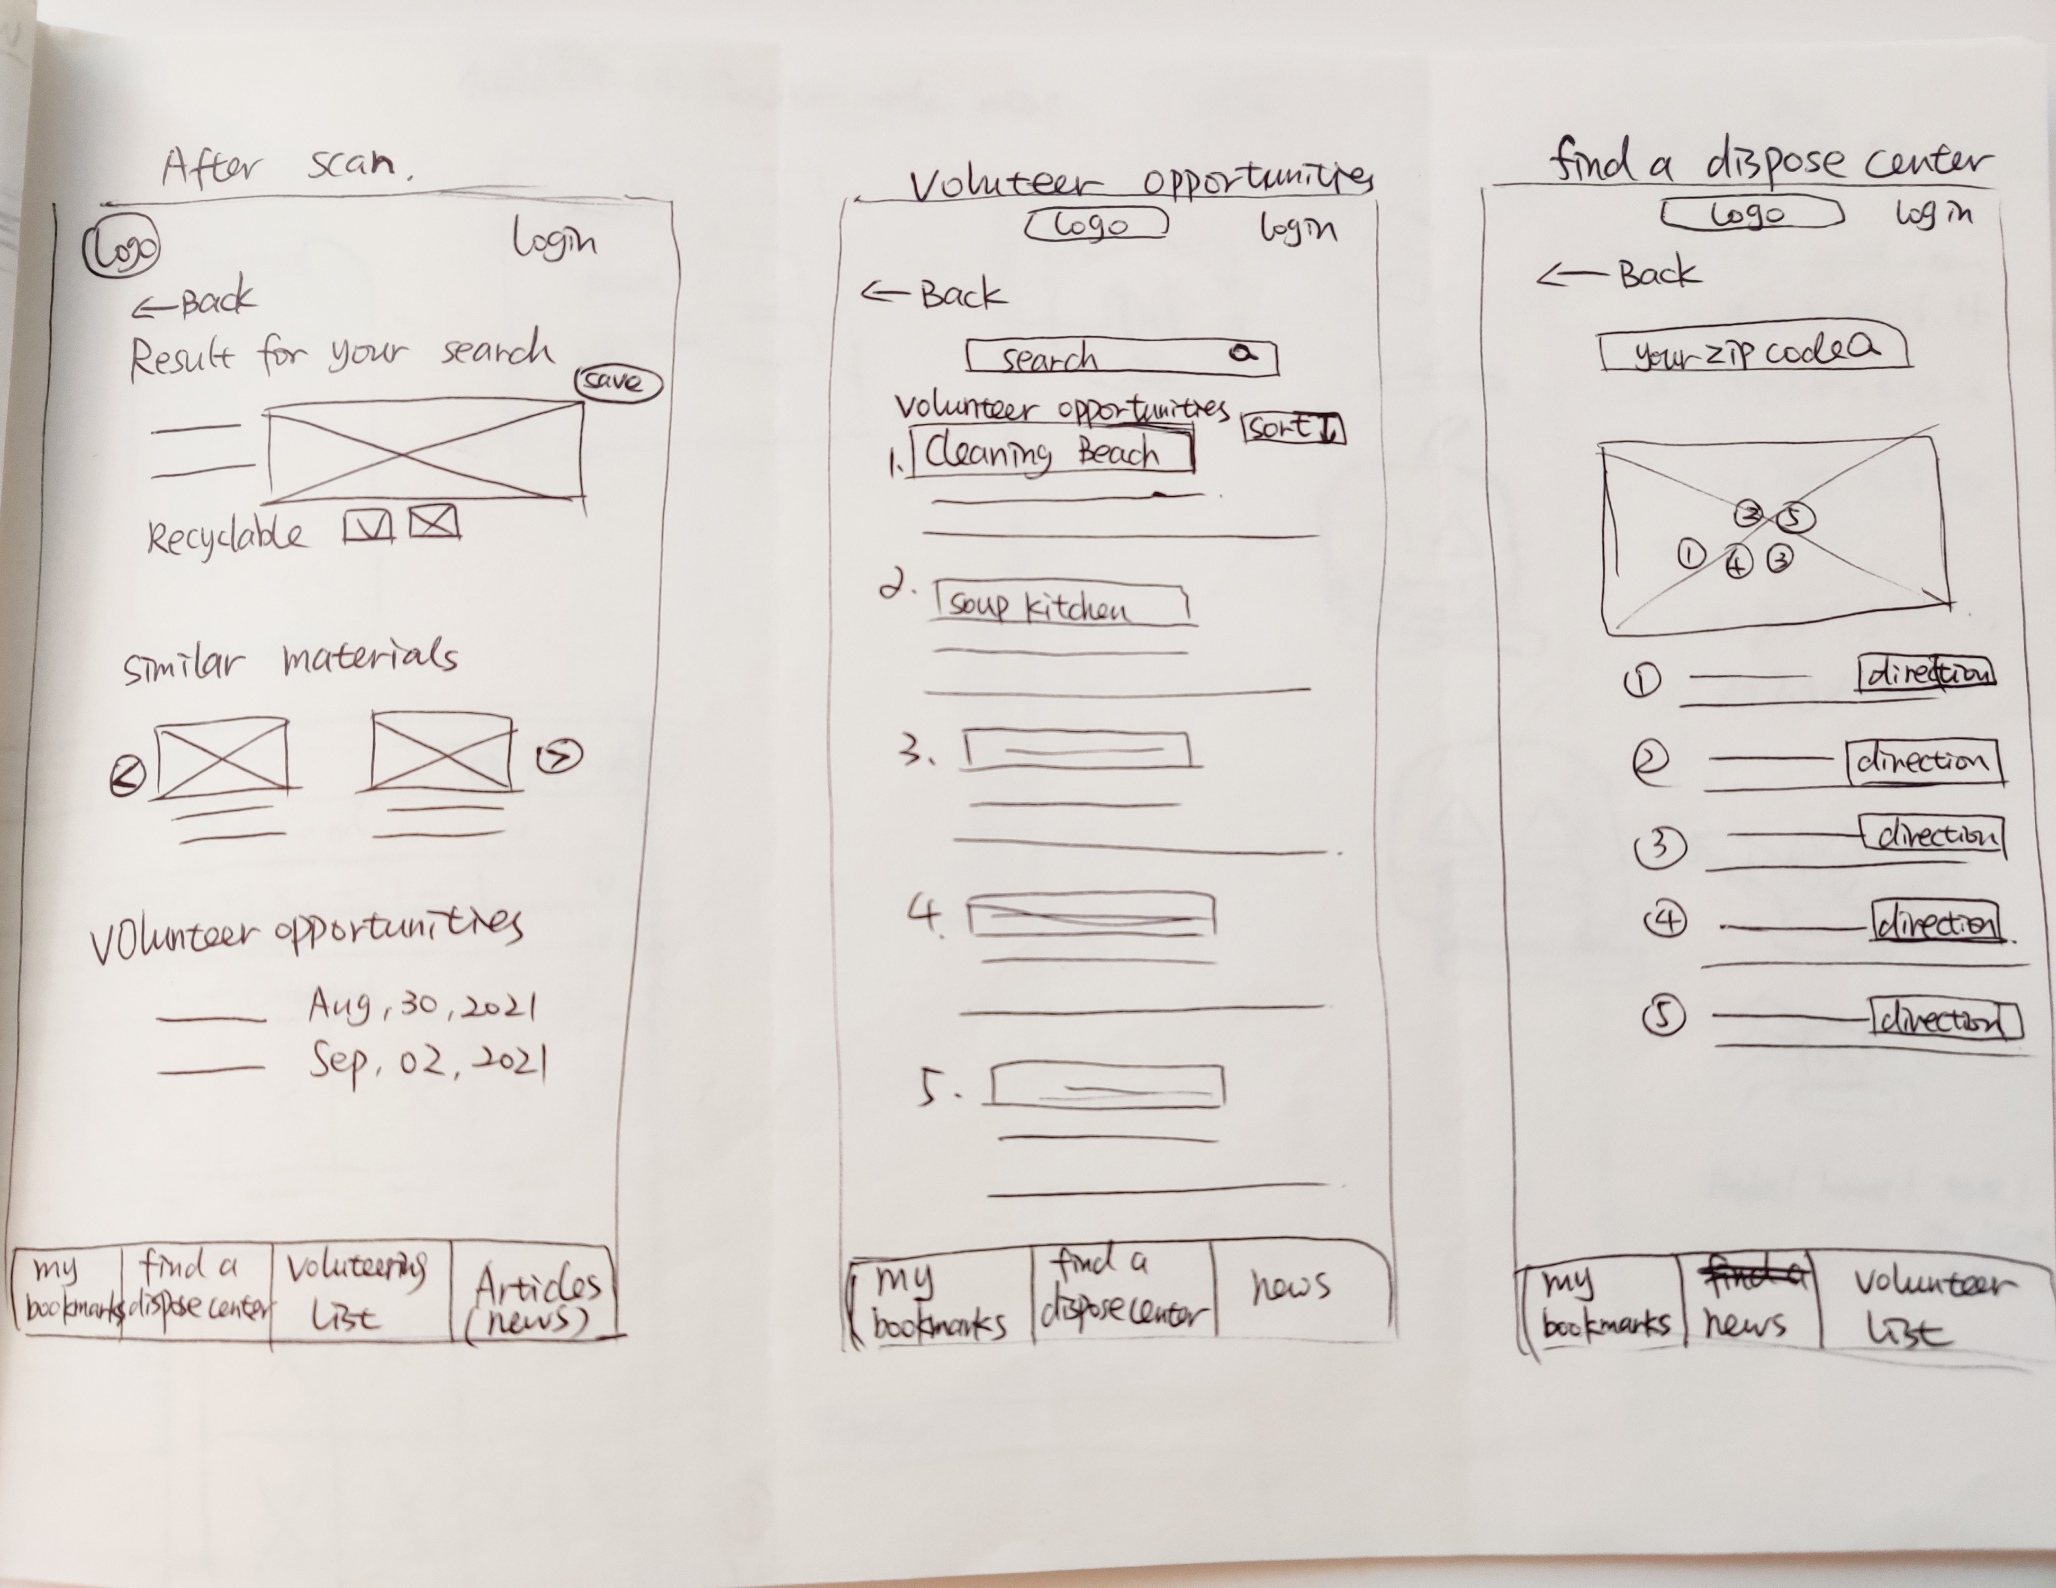 After scan.
Logo
Login
←Back
Result for your search
save
Recyclable
similar materials
<
>
volunteer opportunities
Aug, 30, 2021
Sep, 02, 2021
my
bookmarks
find a
dispose center
Voluteering
List
Articles
(news)
Voluteer opportunities
Logo
Login
←Back
search
volunteer opportunities
sort↓
1. Cleaning Beach
2. soup kitchen
3.
4.
5.
my
bookmarks
find a
dispose center
news
find a dispose center
Logo
Login
←Back
your zip code
② ⑤
① ④ ③
① direction
② direction
③ direction
④ direction
⑤ direction
my
bookmarks
find a
news
volunteer
List